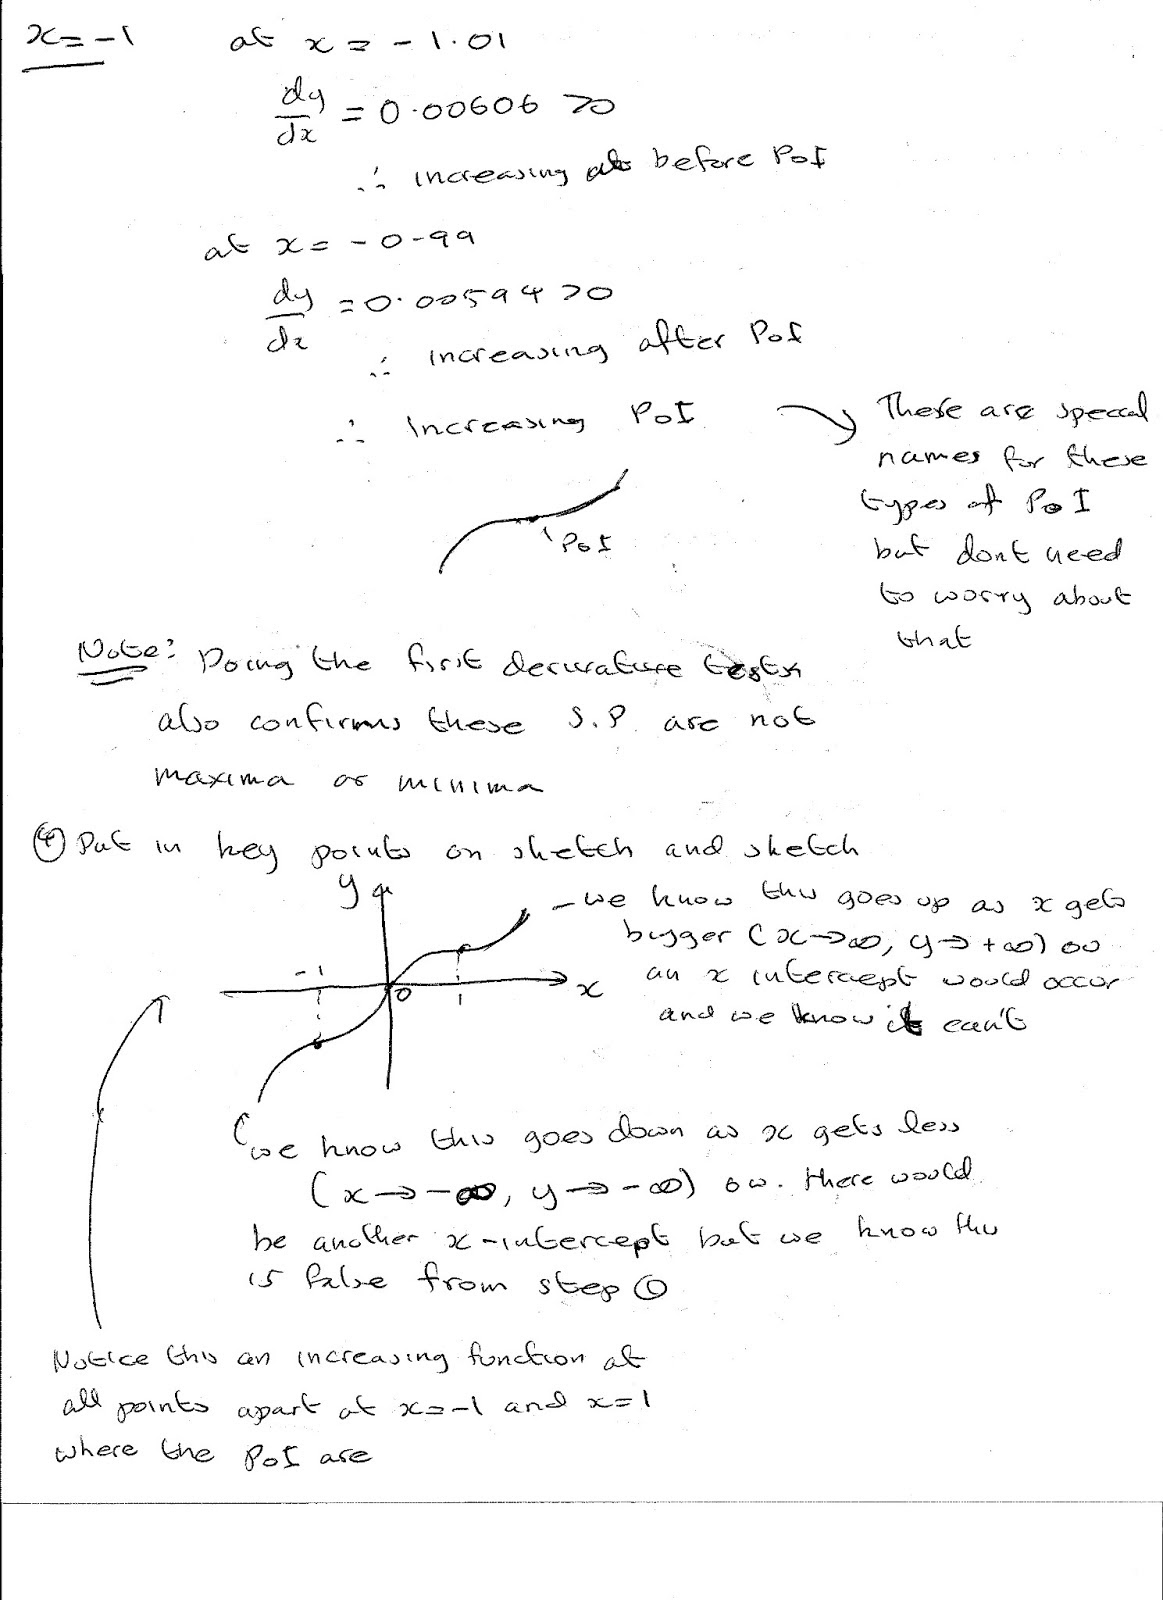 x = -1 at x = -1.01
dy/dx = 0.00606 >0
∴ increasing before PoI
at x = -0.99
dy/dx = 0.00594 >0
∴ increasing after PoI
∴ Increasing PoI
There are special
names for these
types of PoI
but dont need
to worry about
that
PoI
Note: Doing the first derivative tests
also confirms these S.P. are not
maxima or minima
④ Put in key points on sketch and sketch
y
-we know this goes up as x gets
bigger (x→∞, y→+∞) ow
an x intercept would occur
and we know it can't
-1 0 1 x
we know this goes down as x gets less
(x→-∞, y→-∞) ow. there would
be another x-intercept but we know this
is false from step ①
Notice this an increasing function at
all points apart at x=-1 and x=1
where the PoI are